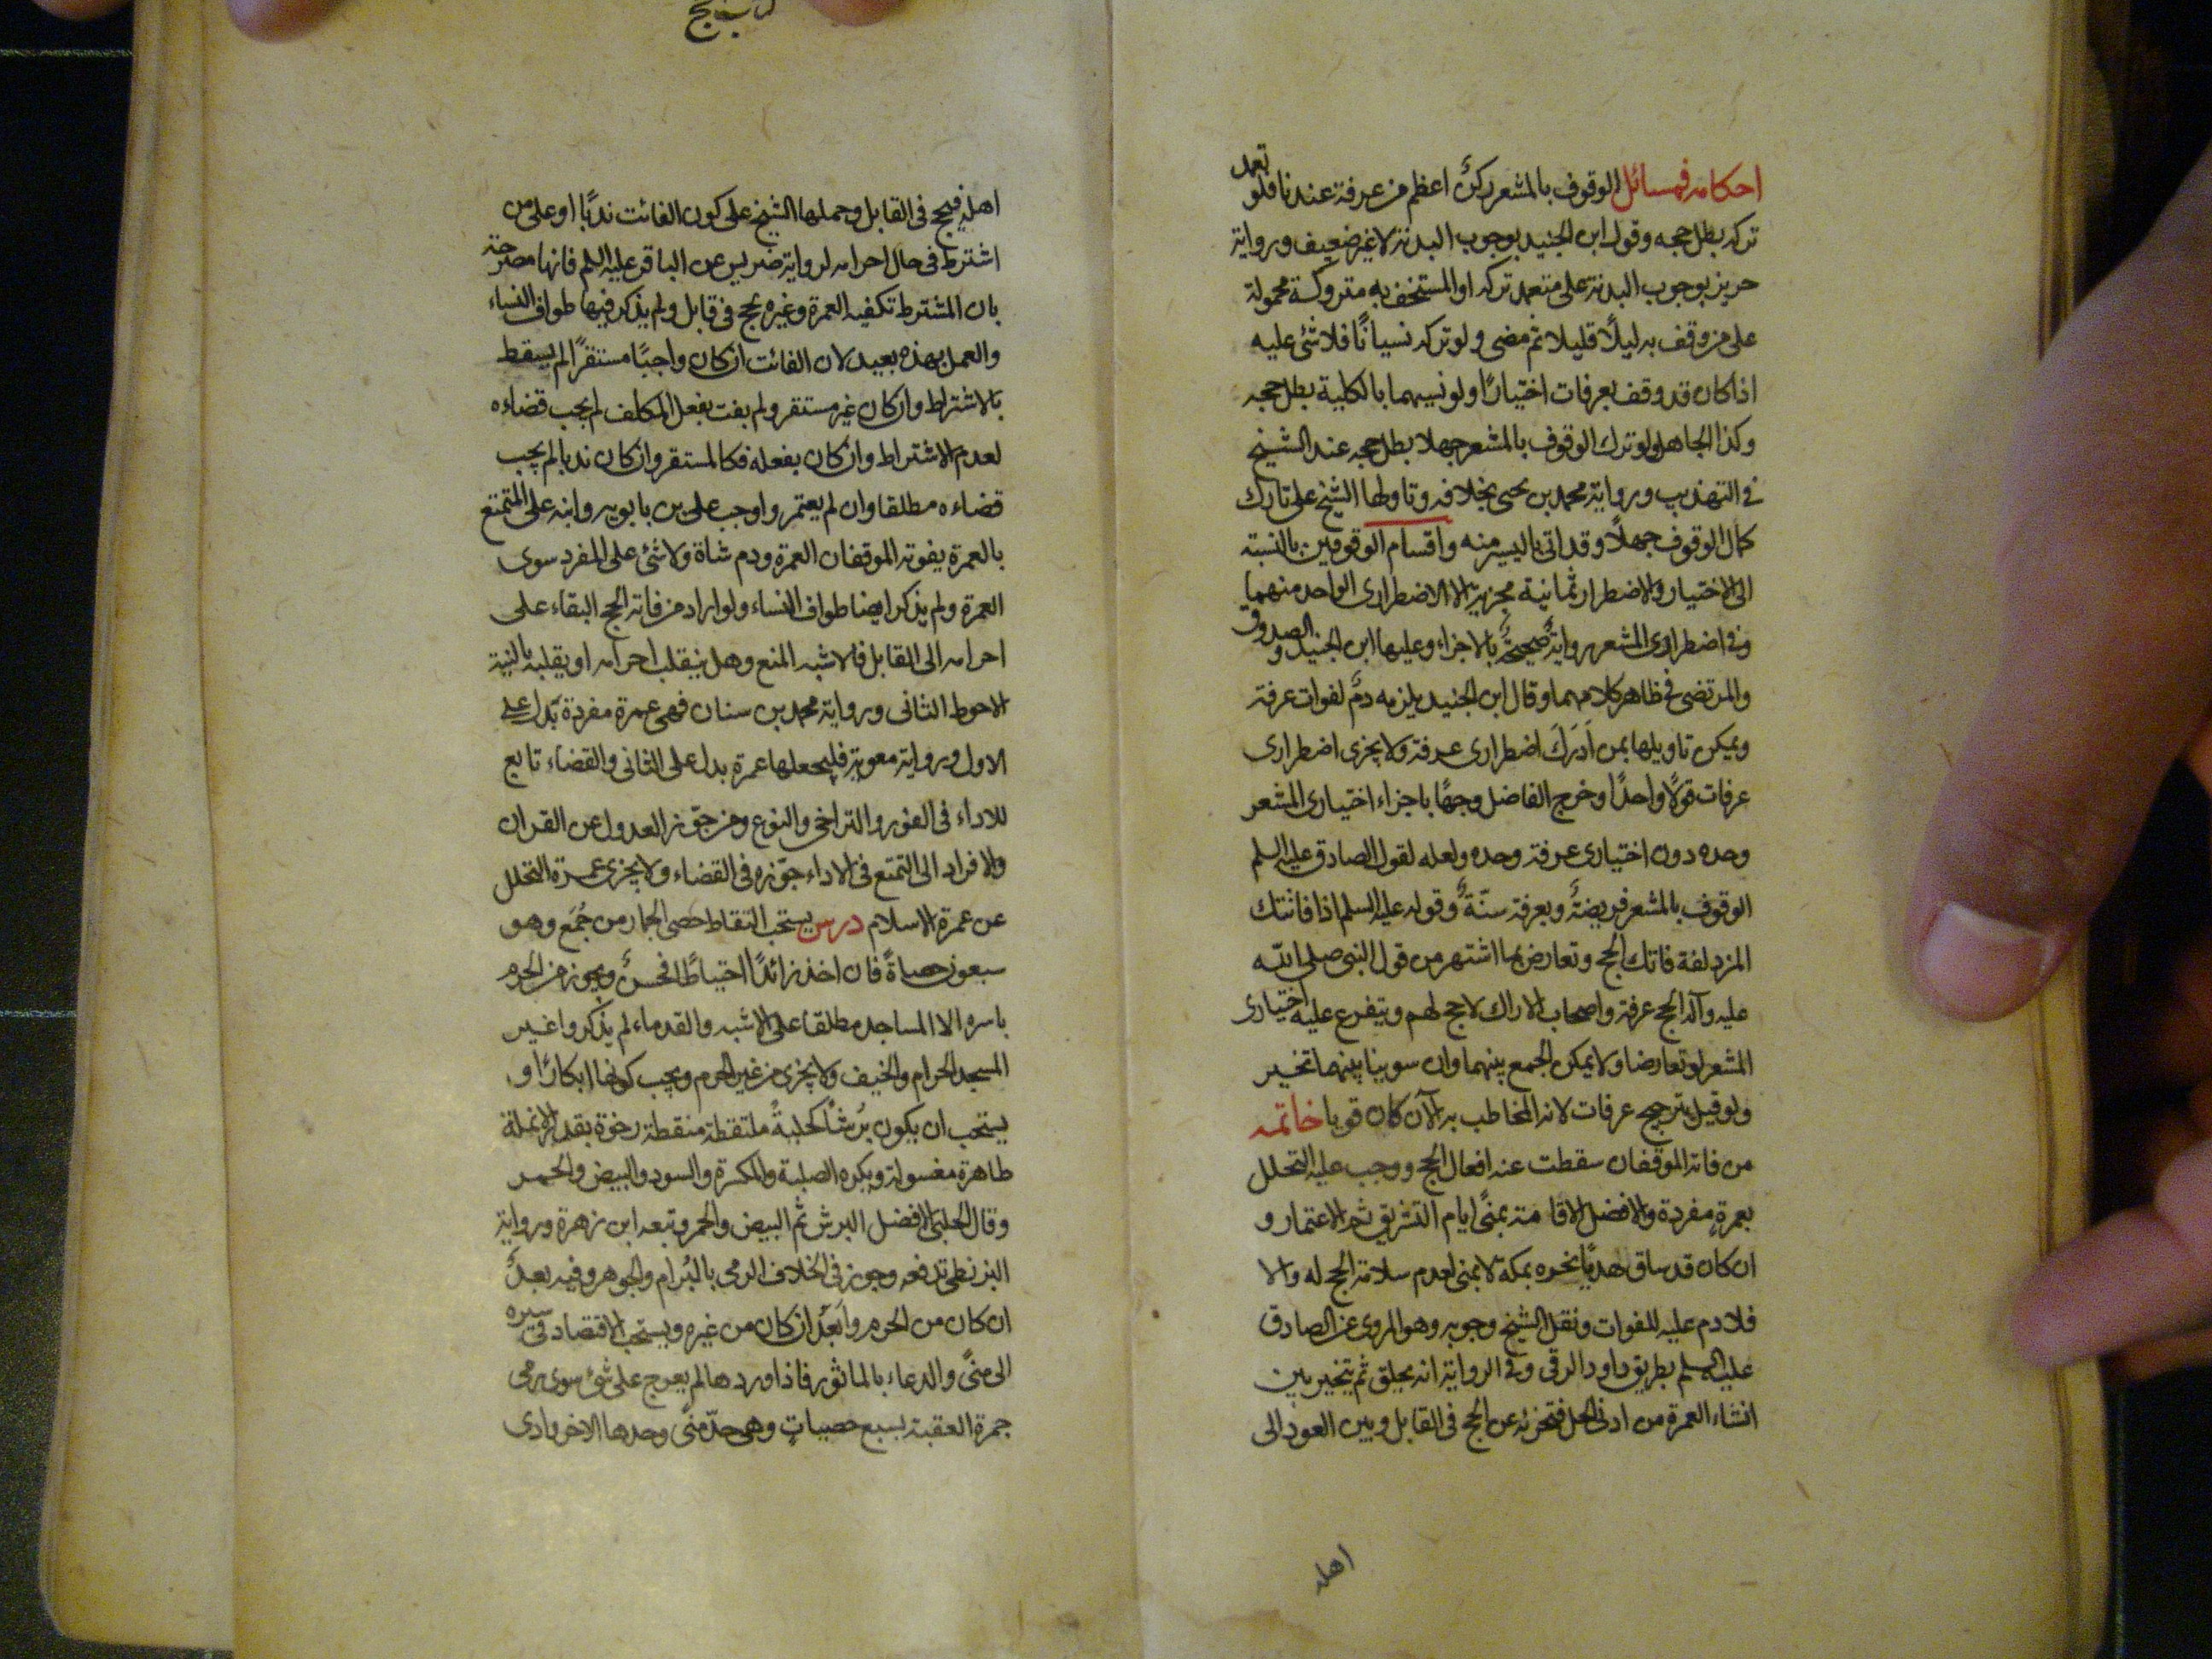 احكامه فمسائل الوقوف بالمشعر ركنٌ اعظم من عرفة عندنا فلو تعمد
تركه بطل حجه وقول ابن الجنيد بوجوب البدنة لا غير ضعيف ورواية
حريز بوجوب البدنة على متعمد تركه او المستخف به متروكة محمولة
على من وقف به ليلًا قليلا ثم مضى ولو تركه نسيانًا فلا شئ عليه
اذا كان قد وقف بعرفات اختيارًا ولو نسيهما بالكلية بطل حجه
وكذا الجاهل ولو ترك الوقوف بالمشعر جهلا بطل حجه عند الشيخ
في التهذيب ورواية محمد بن يحيى بخلافه وتاولها الشيخ على تارك
كمال الوقوف جهلًا وقد اتى باليسير منه واقسام الوقوفين بالنسبة
الى الاختيار والاضطرار ثمانية مجزية الا الاضطرارى الواحد منهما
وفى اضطرارى المشعر رواية صحيحةٌ بالاجزاء وعليها ابن الجنيد والصدوق
والمرتضى فى ظاهر كلامهما وقال ابن الجنيد يلزمه دمٌ لفوات عرفة
ويمكن تاويلها بمن اَدرَكَ اضطرارى عرفة ولا يجزى اضطرارى
عرفات قولًا واحدًا وخرج الفاضل وجهًا باجزاء اختيارى المشعر
وحده دون اختيارى عرفة وحده ولعله لقول الصادق عليه السلم
الوقوف بالمشعر فريضةٌ وبعرفة سنّةٌ وقوله عليه السلم اذا فاتتك
المزدلفة فاتك الحج وتعارض بما اشتهر من قول النبى صلى الله
عليه وآله الحج عرفة واصحاب الاراك لا حج لهم ويتفرع عليه اختيارى
المشعر لو تعارضا ولا يمكن الجمع بينهما وان سوينا بينهما تخير
ولو قيل بترجيح عرفات لانه المخاطب به الآن كان قويا خاتمه
من فاته الموقفان سقطت عنه افعال الحج ووجب عليه التحلل
بعمرةٍ مفردة والافضل الاقامة بمنًى ايام التشريق ثم الاعتمار و
ان كان قد ساق هديًا نحره بمكة لا بمنى لعدم سلامة الحج له والا
فلا دم عليه للفوات ونقل الشيخ وجوبه وهو المروى عن الصادق
عليه السلم بطريق داود الرقى وفى الرواية انه يحلق ثم يتخير بين
انشاء العمرة من ادنى الحل فتجزئه عن الحج فى القابل وبين العود الى
اهله
كتاب الحج
اهله فيحج فى القابل وحملها الشيخ على كون الفائت ندبًا او على من
اشترط فى حال احرامه لرواية ضريس عن الباقر عليه السلم فانها مصرحة
بان المشترط تكفيه العمرة وغيره يحج فى قابل ولم يذكر فيها طواف النساء
والعمل بهذه بعيد لان الفائت ان كان واجبًا مستقرًا لم يسقط
بالاشتراط وان كان غير مستقر ولم يفت بفعل المكلف لم يجب قضاءه
لعدم الاشتراط وان كان بفعله فكالمستقر وان كان ندبا لم يجب
قضاءه مطلقا وان لم يعتمر واوجب على بن بابويه وابنه على المتمتع
بالعمرة يفوته الموقفان العمرة ودم شاة ولا شئ على المفرد سوى
العمرة ولم يذكر ايضا طواف النساء ولو اراد من فاته الحج البقاء على
احرامه الى القابل فالاشبه المنع وهل ينقلب احرامه او يقلبه بالنية
الاحوط الثانى ورواية محمد بن سنان فهى عمرة مفردة تدل على
الاول ورواية معوية فليجعلها عمرة يدل على الثانى والقضاء تابع
للاداء فى الفور والتراخى والنوع ومن جوّز العدول عن القران
والافراد الى التمتع فى الاداء جوّزه فى القضاء ولا يجزى عمرة التحلل
عن عمرة الاسلام درس يستحب التقاط حصى الجمار من جُمَع وهو
سبعون حصاةً فان اخذ زائدًا احتياطًا فحسنٌ ويجوز من الحرم
باسره الا المساجد مطلقا على الاشبه والقدماء لم يذكروا غير
المسجد الحرام والخيف ولا يجزى من غير الحرم ويجب كونها ابكارًا و
يستحب ان يكون بُرشًا كحليةً ملتقطة منقطة رخوة بقدر الانملة
طاهرة مغسولة ويكره الصلبة والمكسرة والسود والبيض والحمر
وقال الحلبى الافضل البرش ثم البيض والحمر وتبعه ابن زهرة ورواية
البزنطى تدفعه وجوز فى الخلاف الرمى بالبُرام والجوهر وفيه بعدٌ
ان كان من الحرم واَبَعدُ ان كان من غيره ويستحب الاقتصاد فى سيره
الى منًى والدعاء بالماثور فاذا وردها لم يعرج على شئ سوى رمى
جمرة العقبة بسبع حصيات وهى حدّ منًى وحدها الاخر وادى